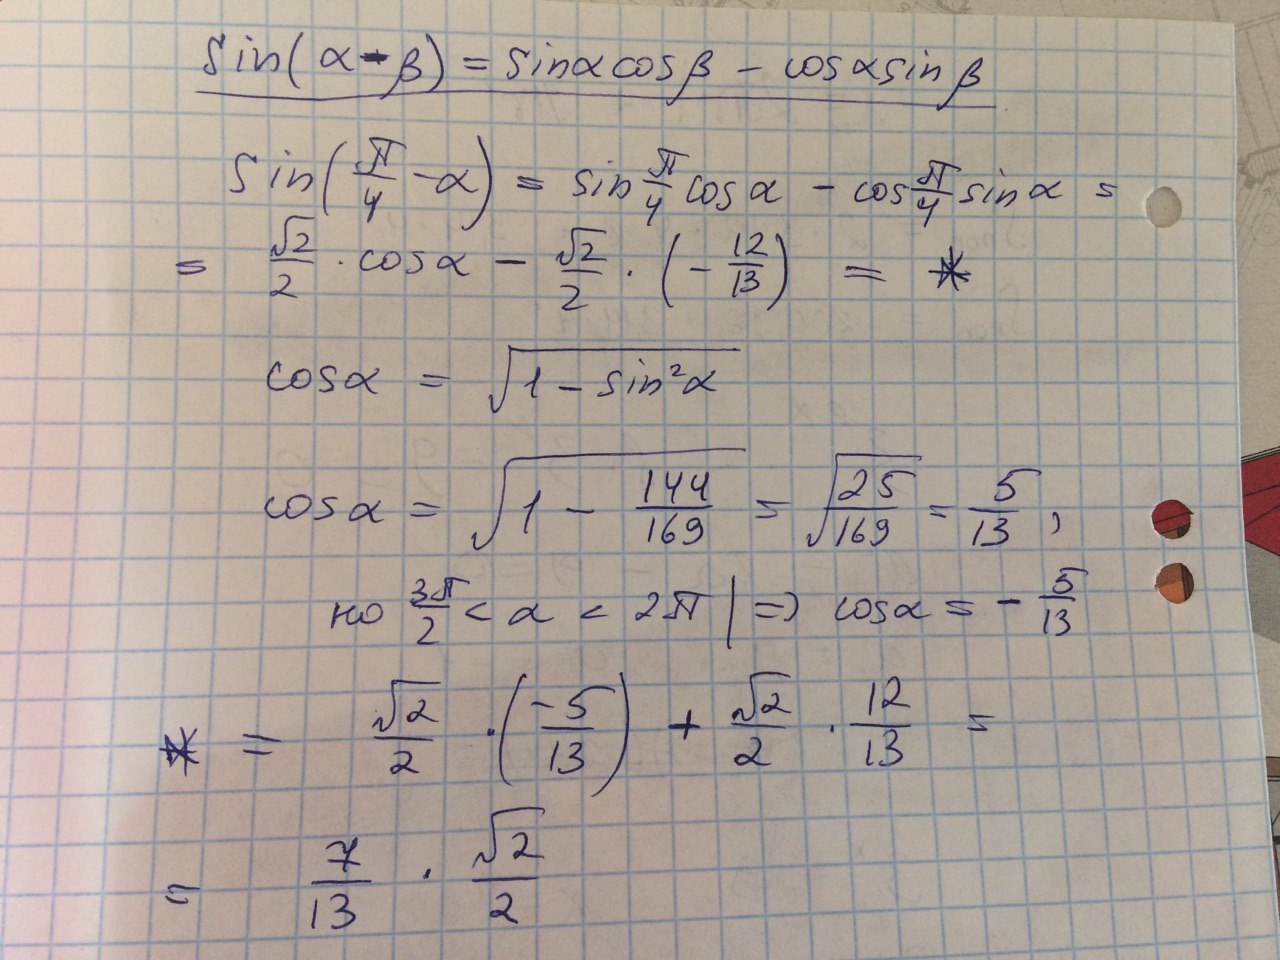 sin(α-β) = sinαcosβ - cosαsinβ
sin(π/4 - α) = sin π/4 cosα - cos π/4 sinα =
= √2/2 · cosα - √2/2 · (- 12/13) = *
cosα = √(1 - sin²α)
cosα = √(1 - 144/169) = √(25/169) = 5/13,
но 3π/2 < α < 2π | => cosα = - 5/13
* = √2/2 · (-5/13) + √2/2 · 12/13 =
= 7/13 · √2/2